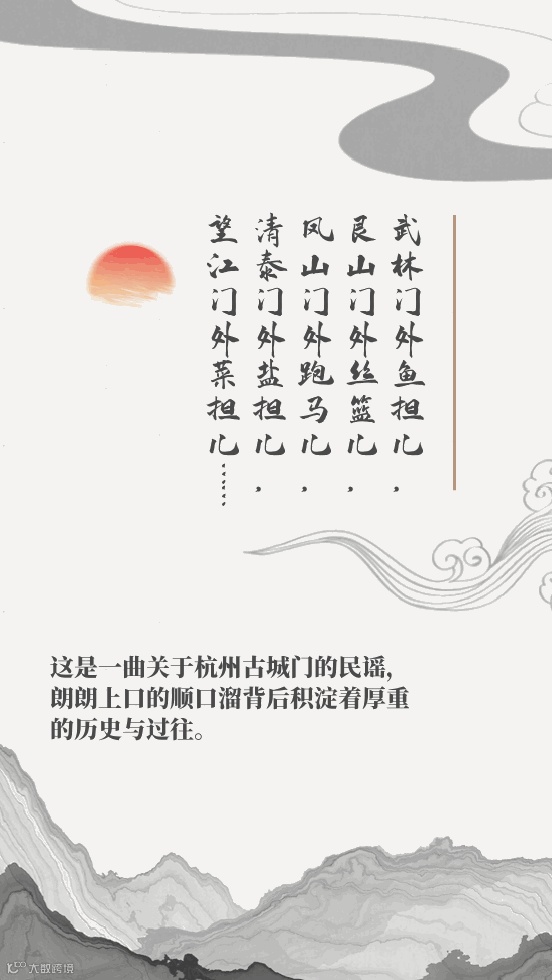 武林门外鱼担儿，
艮山门外丝篮儿，
凤山门外跑马儿，
清泰门外盐担儿，
望江门外菜担儿……
这是一曲关于杭州古城门的民谣，
朗朗上口的顺口溜背后积淀着厚重
的历史与过往。
大数跨境